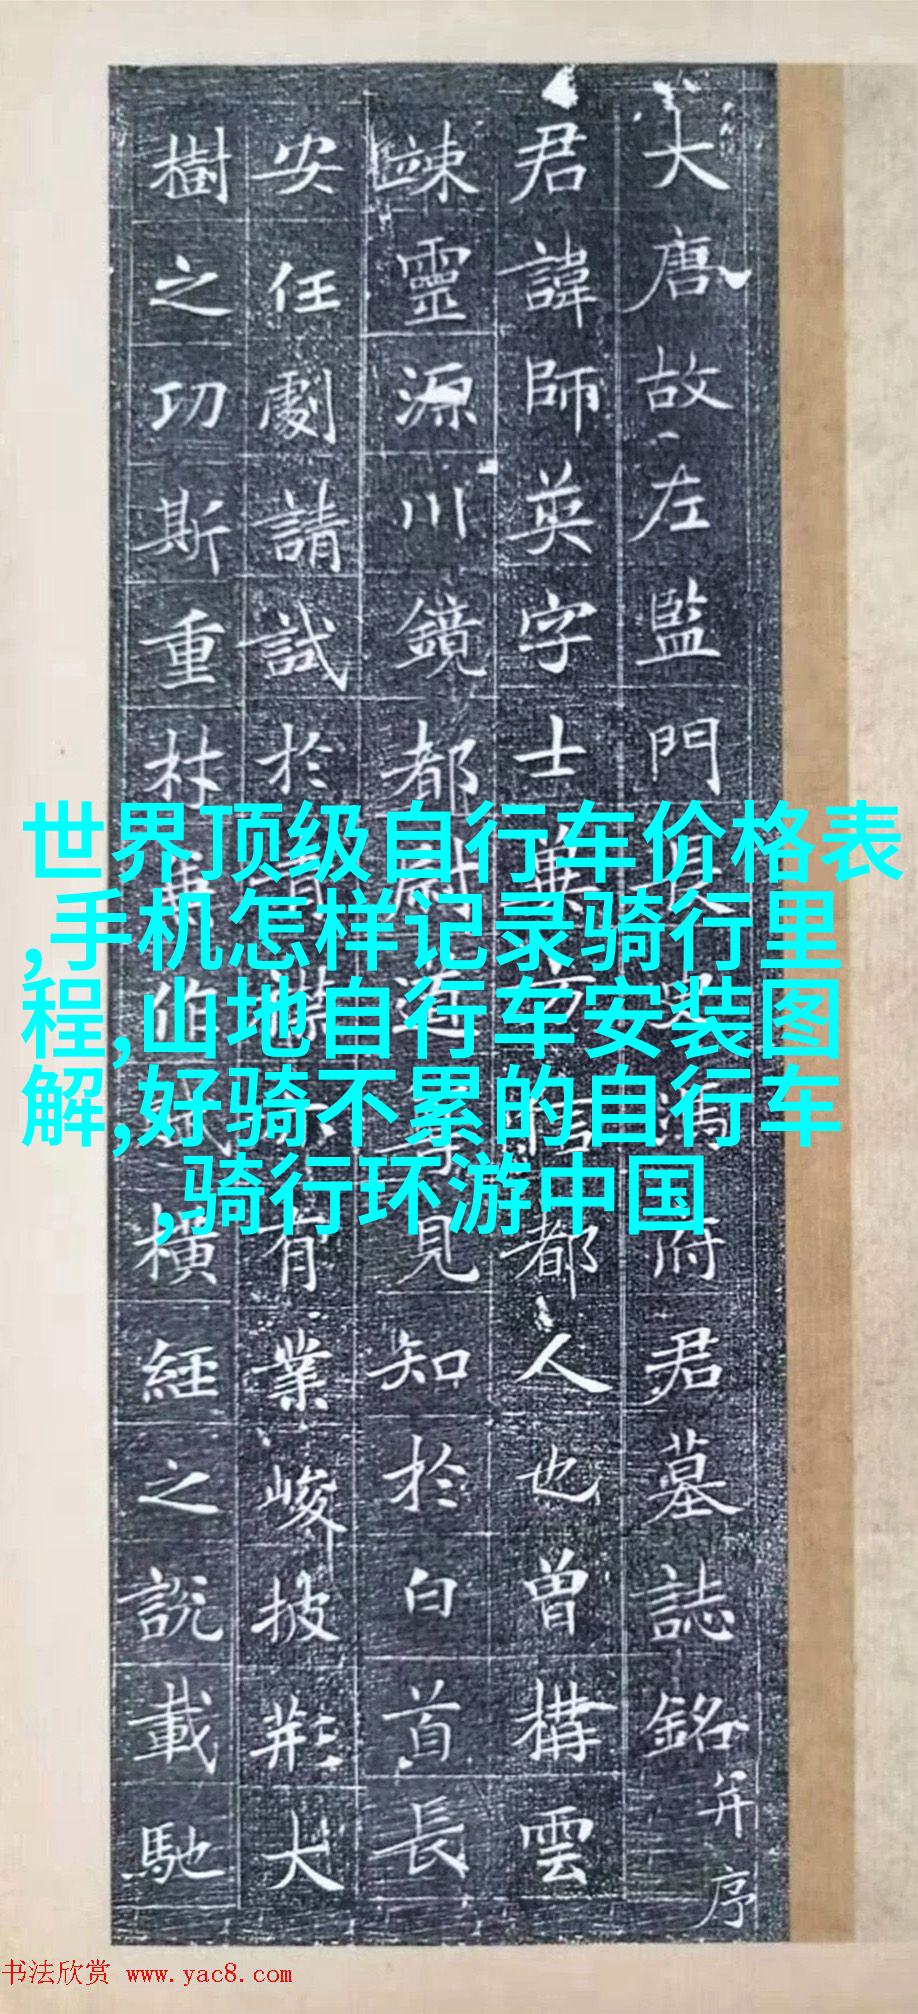 大唐故左監門長史馮府君墓誌銘并序
君諱師英字士都人也曾構雲
竦靈源川鏡都尉見知於白首長
安任劇請試於有業峻披荊大
樹之功斯重橫經之說載馳
世界顶级自行车价格表
,手机怎样记录骑行里
程,山地自行车安装图
解,好骑不累的自行车
,骑行环游中国
书法欣赏 www.yac8.com